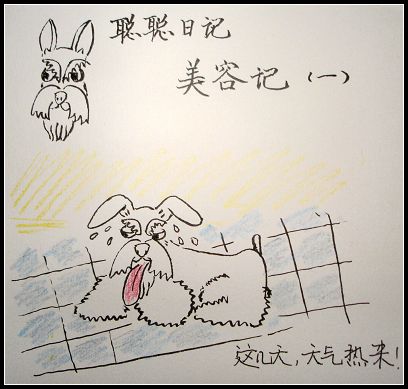 聪聪日记
美容记（一）
这几天，天气热来！